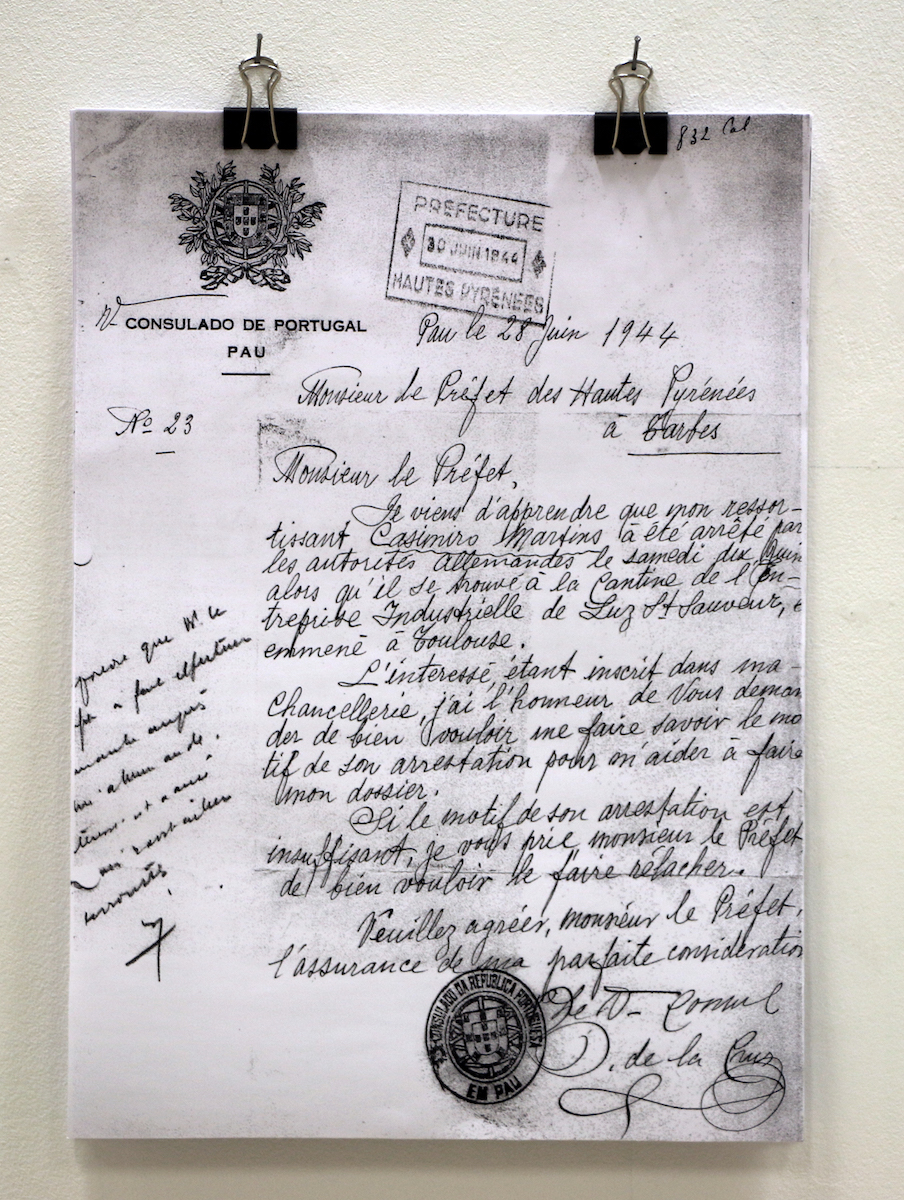 832 Cal
PRÉFECTURE
30 JUIN 1944
HAUTES PYRÉNÉES
V-CONSULADO DE PORTUGAL
PAU
Pau le 28 Juin 1944
Monsieur le Préfet des Hautes Pyrénées
à Tarbes
Nº 23
Monsieur le Préfet,
Je viens d'apprendre que mon ressor-
tissant Casimiro Martins à été arrêté par
les autorités Allemandes le samedi dix Juin
alors qu'il se trouvé à la Cantine de l'En-
treprise Industrielle de Luz St Sauveur, e
emmené à Toulouse.
L'interessé étant inscrit dans ma
Chancellerie, j'ai l'honneur de Vous deman
der de bien vouloir me faire savoir le mo
tif de son arrestation pour m'aider à faire
mon dossier.
Si le motif de son arrestation est
insuffisant, je vous prie monsieur le Préfet
de bien vouloir le faire relacher.
Veuillez agréer, monsieur le Préfet,
l'assurance de ma parfaite consideration
Le V- Consul
D. de la Cruz
VICE-CONSULADO DA REPUBLICA PORTUGUESA
EM PAU
que Mr le
a fait effectuer
auprès
terroristes